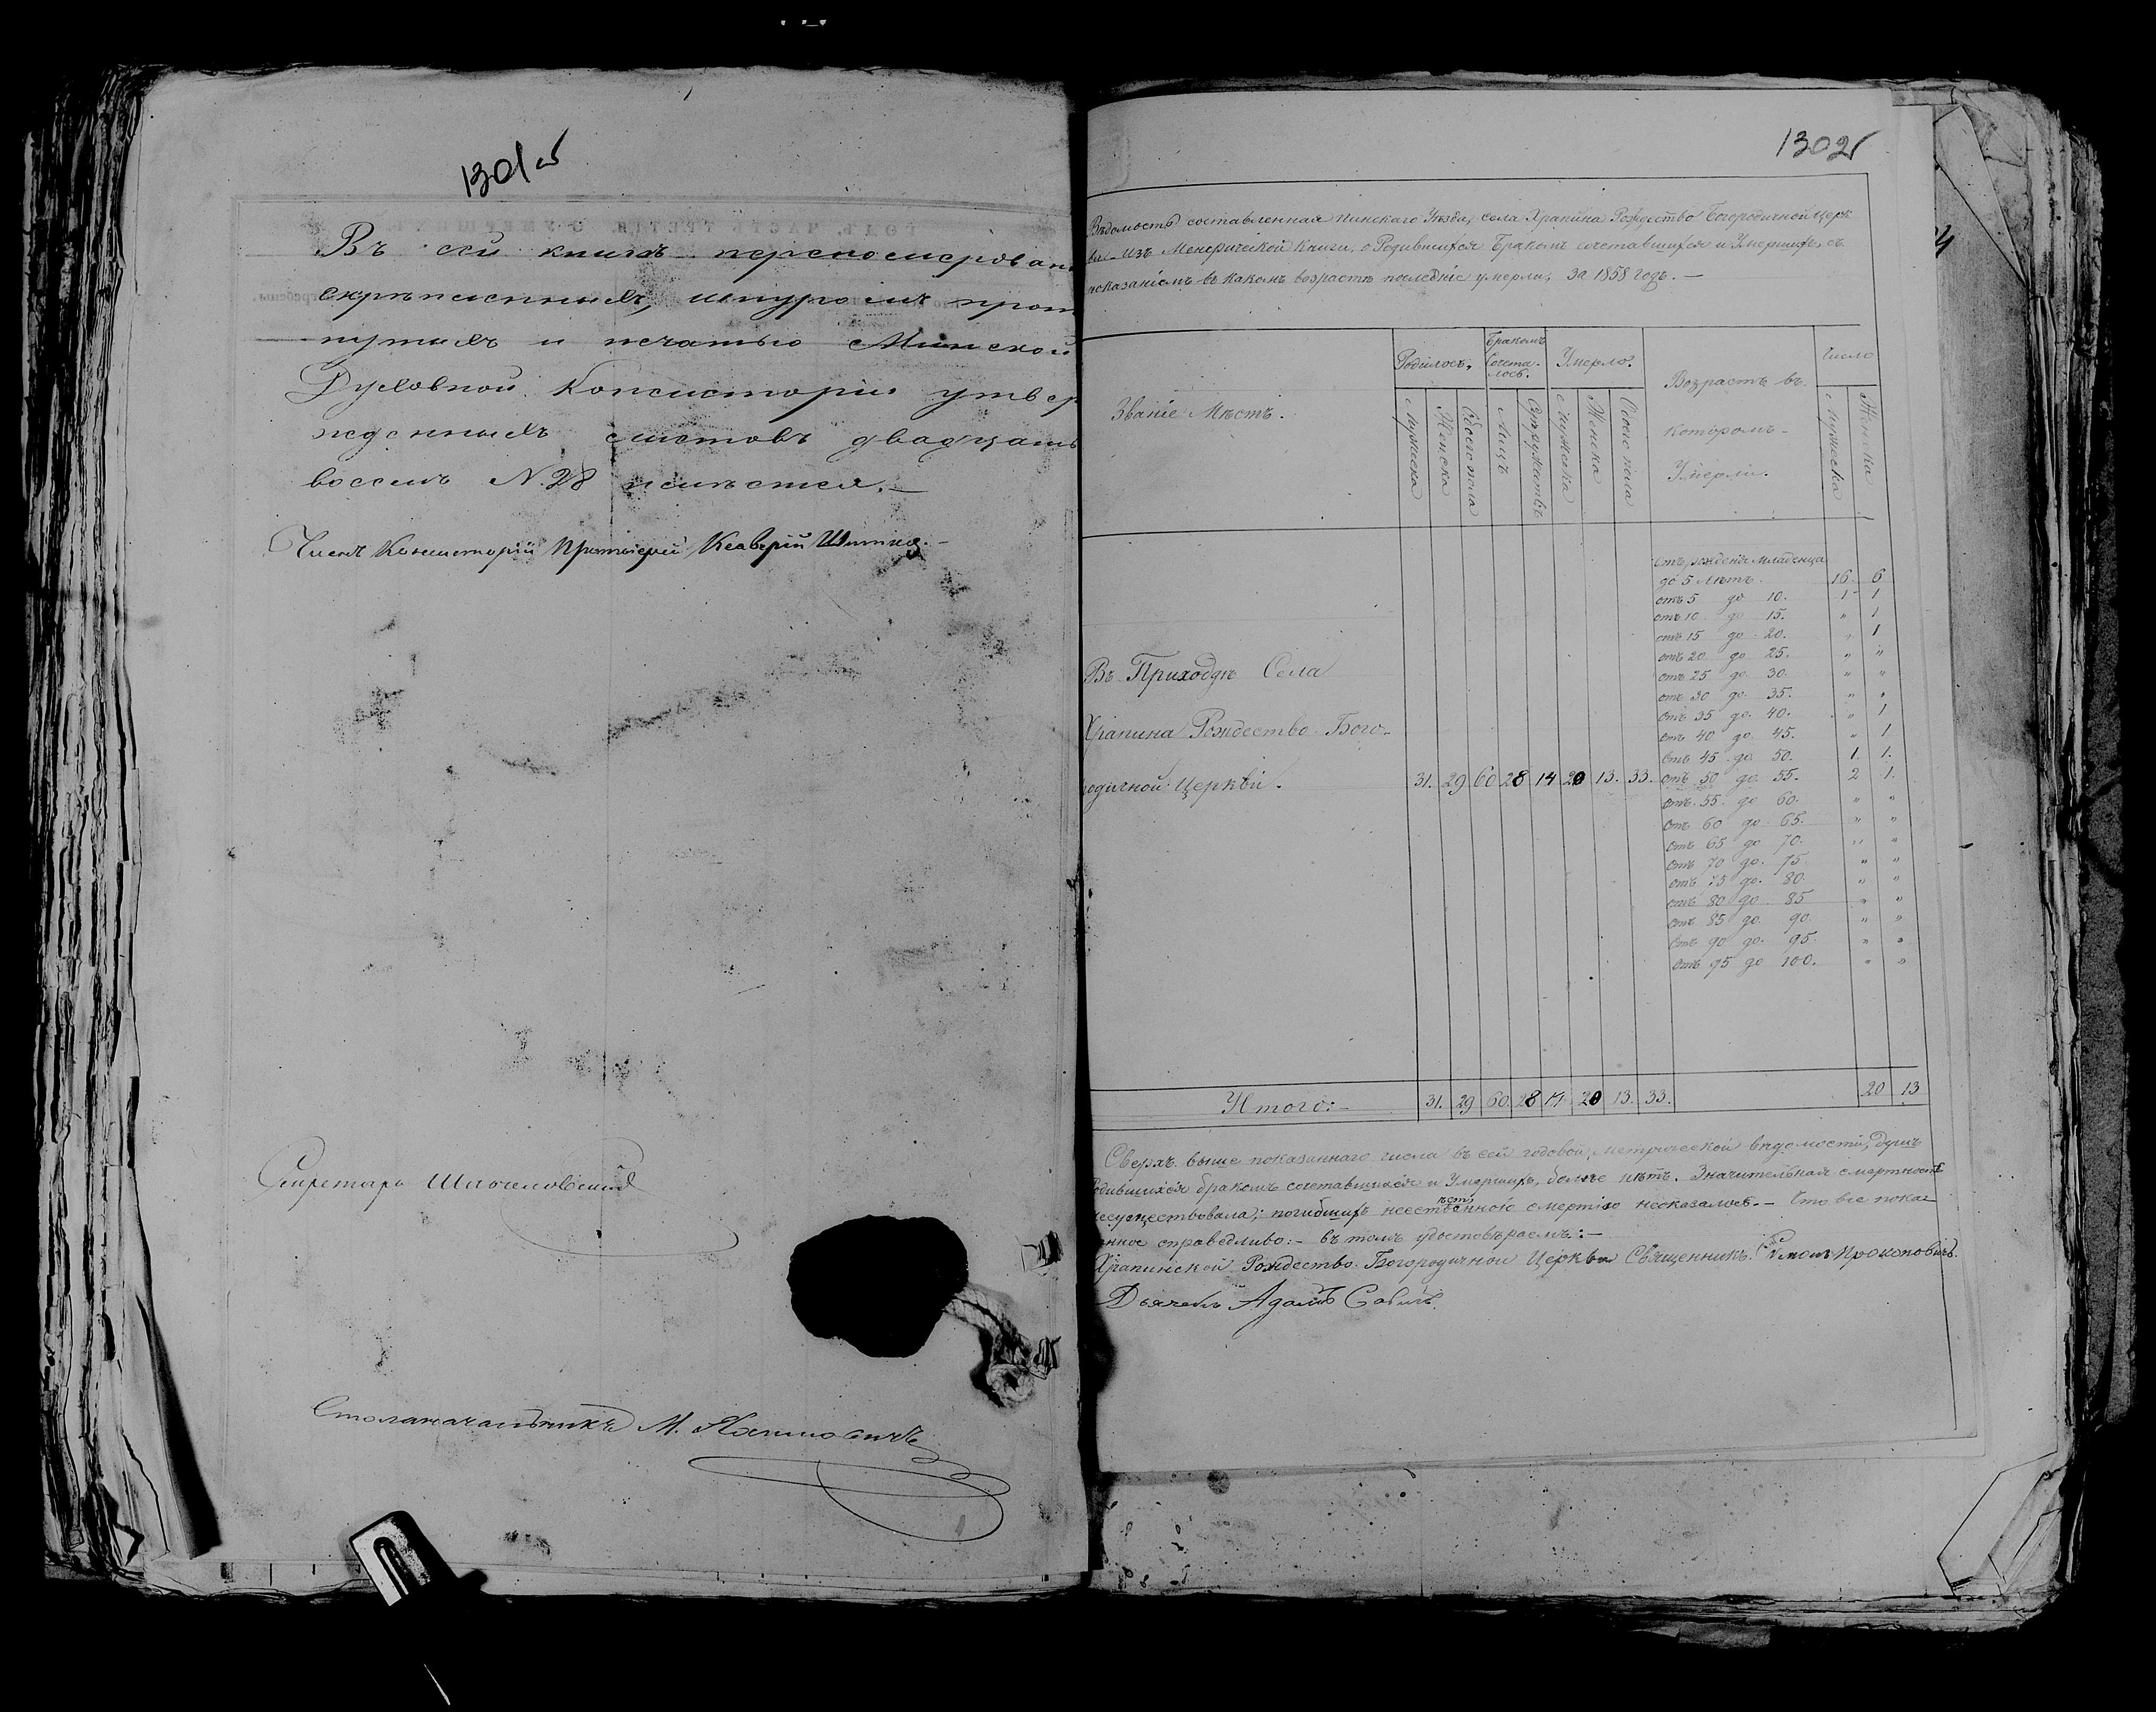 1301об
Въ сей книгѣ перенумерован
скрѣпленныхъ, шнуромъ прот
нутыхъ и печатью Минской
Духовной Консисторіи утвер
жденныхъ листовъ двадцать
восемь N. 28 имѣется.—
Членъ Консисторіи Протоіерей Ксаверій
Секретарь
Столоначальникъ М.
1302
Вѣдомость составленная Пинскаго Уѣзда, села Храпина Рождество Богородичной Церк
ви - Изъ Метрической Книги, о Родившихся Бракомъ сочетавшихся и Умершихъ, съ
показаніемъ въ какомъ возрастѣ послѣдніе умерли, за 1858 годъ. —
Званіе Мѣстъ.
Родилось.
Бракомъ Сочета-лось.
Умерло.
Возрастъ въ
которомъ
Умерли.
Число
Мужска
Женска
Обоего пола
Лицъ
Супружествъ
Мужска
Женска
Обоего пола
Мужска
Женска
отъ рожденія Младенца
до 5 Лѣтъ. 16. 6
отъ 5 до 10. 1 1
отъ 10 до 15. " 1
отъ 15 до 20. " 1
отъ 20 до 25. " "
отъ 25 до 30. " "
отъ 30 до 35. " "
отъ 35 до 40. " 1
отъ 40 до 45. " 1
отъ 45 до 50. 1. 1.
отъ 50 до 55. 2 1.
отъ 55. до 60. " "
отъ 60 до 65. " "
отъ 65 до 70. " "
отъ 70 до 75 " "
отъ 75 до 80. " "
отъ 80 до 85 " "
отъ 85 до 90. " "
отъ 90 до 95. " "
отъ 95 до 100. " "
Въ Приходѣ Села
Храпина Рождество Бого-
родичной Церкви. 31. 29 60 28 14 20 13. 33.
Итого:- 31. 29 60. 28 14. 20 13. 33. 20 13
Сверхъ выше показаннаго числа въ сей годовой метрической вѣдомости, душъ
Родившихся бракомъ сочетавшихся и Умершихъ, болѣе нѣтъ. Значительная смертность
несуществовала; погибшихъ неестественною смертію несказалось. - Что все пока-
нное справедливо: - въ томъ удостовѣряемъ: -
Храпинской Рождество Богородичной Церкви Священникъ Прокоповичъ.
Дьячекъ Адамъ